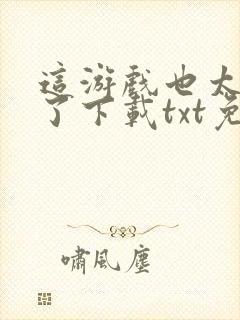 這游戲也太
了下載txt免
嘯風塵